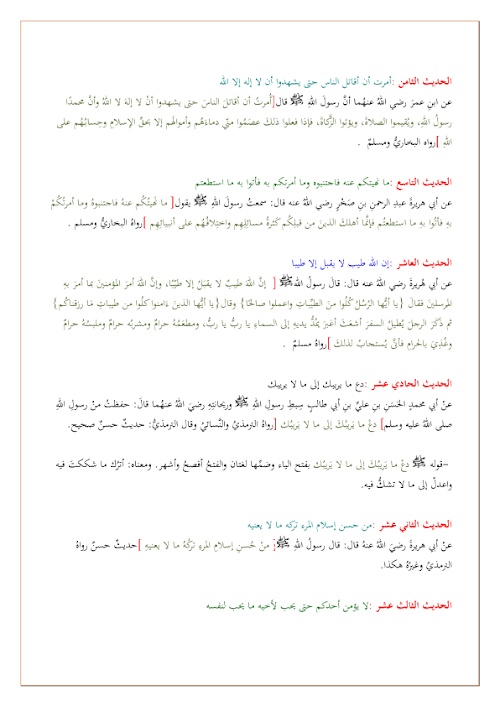 الحديث الثامن :أمرت أن أقاتل الناس حتى يشهدوا أن لا إله إلا الله
عن ابنِ عمرَ رضي اللهُ عنهُما أنَّ رسولَ اللهِ ﷺ قال[أُمرتُ أن أقاتلَ الناسَ حتى يشهدوا أنْ لا إلهَ لا اللهُ وأنَّ محمدًا
رسولُ اللهِ، ويُقيموا الصلاةَ، ويؤتوا الزَّكاةَ، فإذا فعلوا ذلكَ عصَمُوا منّي دماءَهُم وأموالهُم إلا بحقِّ الإسلامِ وحِسابُهُم على
اللهِ ]رواه البخاريُّ ومسلمٌ .
الحديث التاسع :ما نهيتكم عنه فاجتنبوه وما أمرتكم به فأتوا به ما استطعتم
عن أبي هريرةَ عبدِ الرحمنِ بنِ صَخْرٍ رضي اللهُ عنه قال: سمعتُ رسولَ اللهِ ﷺ يقول[ ما نَهيتُكُم عنهُ فاجتنبوهُ وما أمرتُكُمْ
بهِ فأتُوا بهِ ما استطعتُم فإنَّما أهلكَ الذينَ من قبلِكُم كَثرةُ مسائلِهِم واختِلافُهُم على أنبيائِهِم ]رواهُ البخاريُّ ومسلم .
الحديث العاشر :إن الله طيب لا يقبل إلا طيبا
عن أبي هُريرةَ رضي اللهُ عنه قال: قالَ رسولُ اللهﷺ [ إنَّ اللهَ طيبٌ لا يقبَلُ إلا طيّبًا، وإنَّ اللهَ أمرَ المؤمنينَ بما أمرَ بهِ
المرسلينَ فقالَ {يا أيُّها الرُّسُلُ كُلُوا منَ الطيّباتِ واعملوا صالحًا} وقال{يا أيُّها الذينَ ءَامنوا كلُوا من طيباتِ مَا رزقناكُم}
ثم ذَكَرَ الرجلَ يُطيلُ السفرَ أشعَثَ أغبرَ يمُدُّ يديهِ إلى السماءِ يا ربُّ يا ربُّ، ومطعَمُهُ حرامٌ ومشربُه حرامٌ وملبسُهُ حرامٌ
وغُذِيَ بالحرامِ فأنَّى يُستجابُ لذلكَ ]رواهُ مسلمٌ .
الحديث الحادي عشر :دع ما يريبك إلى ما لا يريبك
عنْ أبي محمدٍ الحَسَنِ بنِ عليِّ بنِ أبي طالبٍ سِبطِ رسولِ اللهِ ﷺ وريحانتِهِ رضيَ اللهُ عنهُما قالَ: حفظتُ منْ رسولِ اللهِ
صلى اللهُ عليه وسلم] دعْ ما يَريبُكَ إلى ما لا يَريبُك [رواهُ الترمذيُّ والنَّسائيُّ وقال الترمذيُّ: حديثٌ حسنٌ صحيح.
-قوله ﷺ دعْ ما يَريبُكَ إلى ما لا يَريبُك بفتح الياء وضمِّها لغتان والفتحُ أفصحُ وأشهر. ومعناه: أترُك ما شككتَ فيه
واعدلْ إلى ما لا تشكُّ فيه.
الحديث الثاني عشر :من حسن إسلام المرء تركه ما لا يعنيه
عنْ أبي هريرةَ رضيَ اللهُ عنهُ قال: قال رسولُ اللهِ ﷺ[ منْ حُسنِ إسلامِ المرءِ تَركُهُ ما لا يعنيهِ ]حديثٌ حسنٌ رواهُ
الترمذيُ وغيرُهُ هكذا.
الحديث الثالث عشر :لا يؤمن أحدكم حتى يحب لأخيه ما يحب لنفسه